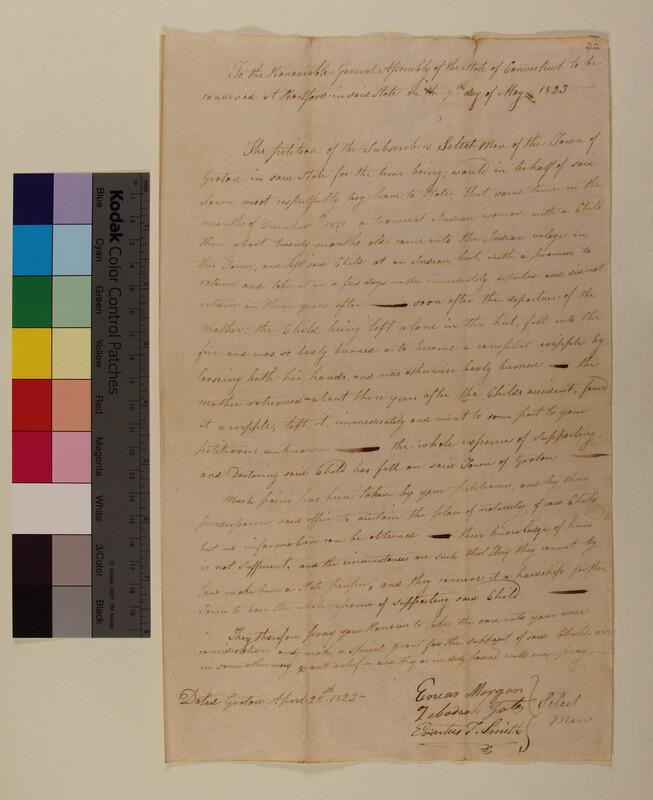 22
To the Honourable General Assembly of the State of Connecticut to be
convened at Hartford in said State on the 7th day of May 1823
The petition of the Subscribers Select Men of the Town of
Groton in said State for the time being; would in behalf of said
Town most respectfully beg leave to State, that some time in the
month of December 1817 a transient Indian woman with a Child
then about twenty months old came into the Indian vilage in
this Town, and left said Child at an Indian hut, with a promise to
return and take it in a few days she immediately departed and did not
return in three years after soon after the departure of the
Mother: the Child being left alone in the hut, fell into the
fire and was so badly burned as to become a complete cripple by
loosing both his hands, and was otherwise badly burned the
Mother returned about three years after the Childs accident, found
it a cripple, left it immediately and went to some part to your
petitioners unknown the whole expense of supporting
and Doctoring said Child has fell on said Town of Groton
Much pains has been taken by your petitioners, and by their
predecessors in said office to the place of nativity of said Child
but no information can be obtained their knowledge of him
is not sufficient, and the circumstances are such that they cannot by
law make him a State pauper, and they concieve it a hardship for their
Town to bear the whole expense of supporting said Child
They therefore pray your Honours to take the case into your wise
consideration and make a special grant for the support of said Child, or
in some other way grant relief and they as in duty bound will ever pray
Dated Groton April 25th 1823
Eneas Morgan
Zebadiah Gates
T. Smith
Select
Men
Kodak Color Control Patches
Blue
Cyan
Green
Yellow
Red
Magenta
White
3/Color
Black
© Kodak, 2007 TM: Kodak